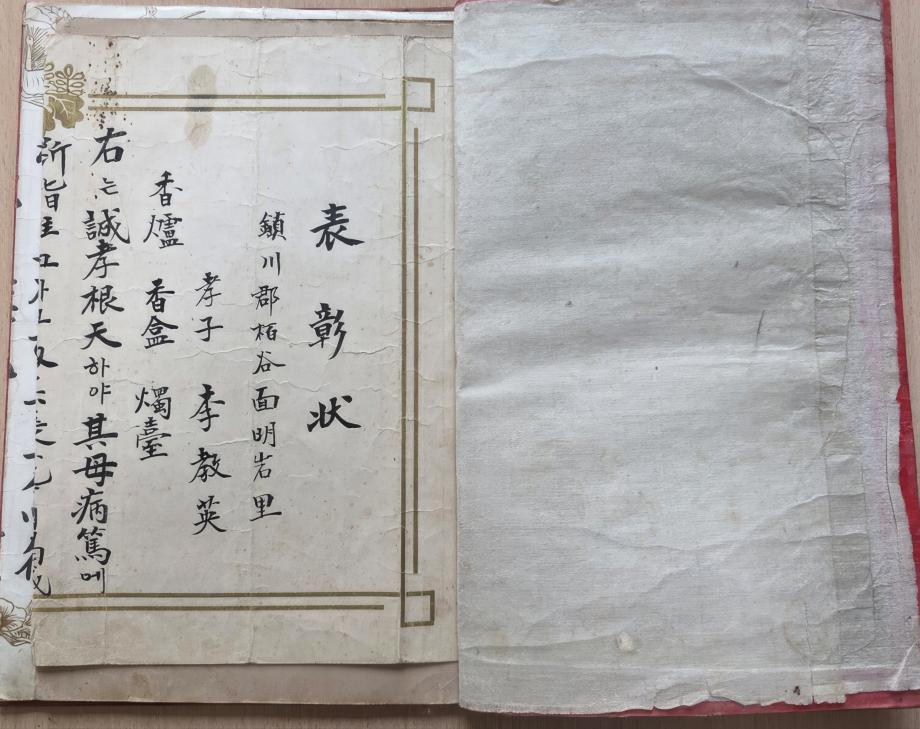 表彰状
鎭川郡栢谷面明岩里
孝子 李教英
香爐 香盒 燭臺
右는誠孝根天하야其母病篤에
斫指